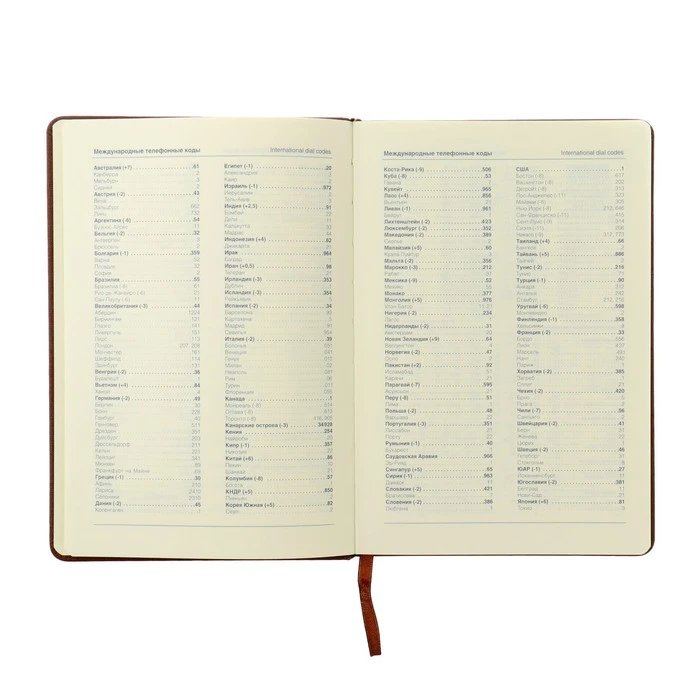 Международные телефонные коды International dial codes
Австралия (+7) 61
Канберра 6
Мельбурн 3
Сидней 2
Австрия (-2) 43
Вена 1
Зальцбург 662
Линц 732
Аргентина (-6) 54
Буэнос-Айрес 11
Бельгия (-2) 32
Антверпен 3
Брюссель 2
Болгария (-1) 359
Варна 52
Пловдив 32
София 2
Бразилия 55
Великобритания (-3) 44
Абердин 1224
Бирмингем 121
Глазго 141
Ливерпуль 151
Лидс 113
Лондон 207, 208
Манчестер 161
Шеффилд 114
Эдинбург 131
Венгрия (-2) 36
Будапешт 1
Вьетнам (+4) 84
Ханой 4
Германия (-2) 49
Берлин 30
Бонн 228
Гамбург 40
Ганновер 511
Дрезден 351
Дуйсбург 203
Дюссельдорф 211
Кельн 221
Мюнхен 89
Франкфурт на Майне 69
Греция (-1) 30
Афины 210
Лариса 2410
Салоники 2310
Дания (-2) 45
Копенгаген
Египет (-1) 20
Александрия 3
Каир 2
Израиль (-1) 972
Иерусалим 2
Тель-Авив 3
Индия (+2,5) 91
Бомбей 22
Дели 11
Калькутта 33
Мадрас 44
Индонезия (+4) 62
Джакарта 21
Ирак 964
Багдад 1
Иран (+0,5) 98
Тегеран 21
Ирландия (-3) 353
Дублин 1
Исландия (-3) 354
Рейкьявик
Испания (-2) 34
Барселона 93
Мадрид 91
Севилья 954
Италия (-2) 39
Болонья 051
Венеция 041
Генуя 010
Милан 02
Неаполь 081
Рим 06
Турин 011
Флоренция 055
Канада 1
Монреаль 514
Оттава 613
Торонто 416, 900
Канарские острова (-3) 34928
Кения 254
Найроби 20
Кипр (-1) 357
Никосия 22
Китай (+6) 86
Пекин 10
Шанхай 21
Колумбия (-8) 57
Богота 1
КНДР (+5) 850
Пхеньян 2
Корея Южная (+5) 82
Сеул 2
Международные телефонные коды International dial codes
Коста-Рика (-9) 506
Куба (-8) 53
Гавана 7
Кувейт 965
Лаос (+4) 856
Вьентьян 21
Ливан (-1) 961
Бейрут 1
Лихтенштейн (-2) 423
Люксембург (-2) 352
Македония (-2) 389
Скопье 2
Малайзия (+5) 60
Куала Лумпур 3
Мальта (-3) 356
Марокко (-3) 212
Рабат 37
Мексика (-9) 52
Мехико 55
Монако 377
Монголия (+5) 976
Улан-Батор 11, 21
Нигерия (-2) 234
Лагос 1
Нидерланды (-2) 31
Амстердам 20
Новая Зеландия (+9) 64
Веллингтон 4
Норвегия (-2) 47
Осло 2
Пакистан (+2) 92
Исламабад 51
Карачи 21
Парагвай (-7) 595
Асунсьон 21
Перу (-8) 51
Лима 1
Польша (-2) 48
Варшава 22
Португалия (-3) 351
Лиссабон 21
Порту 22
Румыния (-1) 40
Бухарест 21
Саудовская Аравия 966
Эр-Рияд 1
Сингапур (+5) 65
Сирия (-1) 963
Дамаск 11
Словакия (-2) 421
Братислава 2
Словения (-2) 386
Любляна 1
США 1
Тайланд (+4) 66
Бангкок 2
Тайвань (+5) 886
Тайпей 2
Тунис (-2) 216
Тунис 71
Турция (-1) 90
Анкара 312
Стамбул 212, 216
Уругвай (-6) 598
Монтевидео 2
Финляндия (-1) 358
Хельсинки 9
Франция (-2) 33
Лион 437
Марсель 491
Нант 240
Париж 1
Хорватия (-2) 385
Загреб 1
Сплит 21
Чехия (-2) 420
Брно 5
Прага 2
Чили (-7) 56
Сантьяго 2
Швейцария (-2) 41
Берн 31
Женева 22
Цюрих 1
Швеция (-2) 46
Стокгольм 8
ЮАР (-1) 27
Йоханнесбург 11
Югославия (-2) 381
Белград 11
Нови-Сад 21
Япония (+6) 81
Токио 3